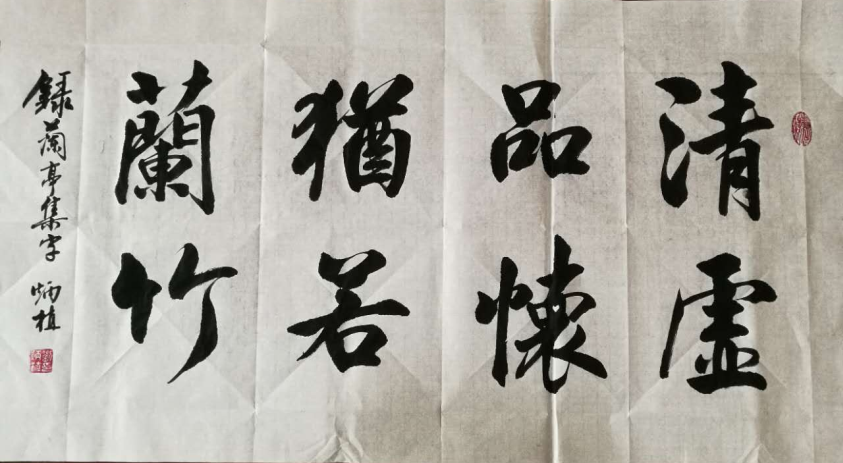 清虚
品懷
猶若
蘭竹
録蘭亭集字 炳植